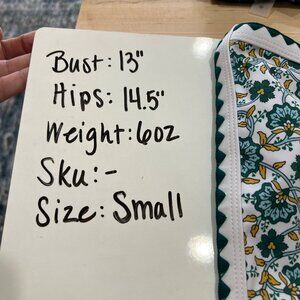 Bust: 13"
Hips: 14.5"
Weight: 6oz
Sku: -
Size: Small